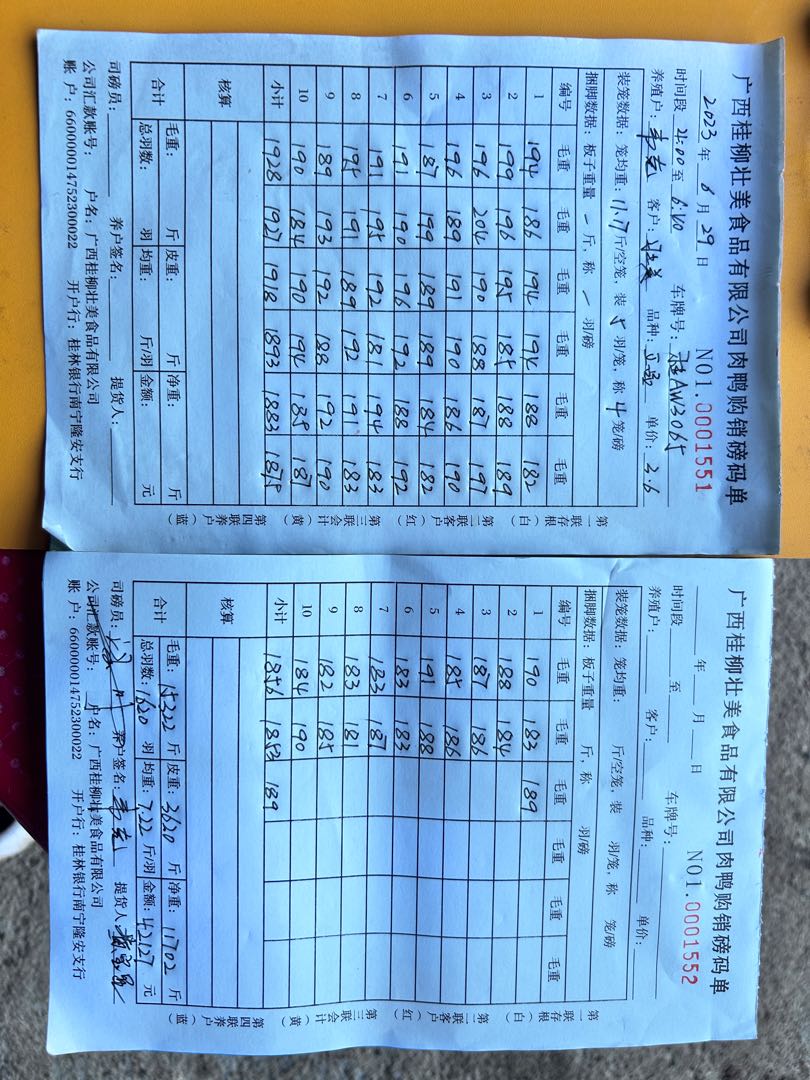 广西桂柳壮美食品有限公司肉鸭购销磅码单
2023年6月29日 车牌号: AW3065 NO1.0001551
时间段 24:00 至 6:40
养殖户: 韦 客户: 壮美 品种: 单价: 3.6
装笼数据: 笼均重: 11.7 斤/空笼, 装 5 羽/笼, 称 4 笼/磅
捆脚数据: 板子重量 — 斤, 称 — 羽/磅
编号 毛重 毛重 毛重 毛重 毛重 毛重
1 194 186 194 194 188 182
2 199 196 195 185 188 189
3 196 204 190 188 187 197
4 196 189 191 190 186 190
5 187 199 189 189 184 182
6 191 190 196 192 188 192
7 191 195 192 181 194 183
8 195 191 189 192 191 183
9 189 193 192 188 192 190
10 190 184 190 194 185 187
小计 1928 1927 1918 1893 1883 1875
核算
合计 毛重: 斤 皮重: 斤 净重: 斤
总羽数: 羽 均重: 斤/羽 金额: 元
司磅员: 养户签名: 提货人:
公司汇款账号: 户名: 广西桂柳壮美食品有限公司
账户: 660000014752300022 开户行: 桂林银行南宁隆安支行
第一联存根(白) 第二联客户(红) 第三联会计(黄) 第四联养户(蓝)
广西桂柳壮美食品有限公司肉鸭购销磅码单
年 月 日 车牌号: NO1.0001552
时间段 至
养殖户: 客户: 品种: 单价:
装笼数据: 笼均重: 斤/空笼, 装 羽/笼, 称 笼/磅
捆脚数据: 板子重量 斤, 称 羽/磅
编号 毛重 毛重 毛重 毛重 毛重 毛重
1 190 183 189
2 188 184
3 187 186
4 185 186
5 191 188
6 183 183
7 183 187
8 183 181
9 182 185
10 184 190
小计 1856 1853 189
核算
合计 毛重: 15322 斤 皮重: 3620 斤 净重: 11702 斤
总羽数: 1620 羽 均重: 7.22 斤/羽 金额: 42127 元
司磅员: 养户签名: 韦 提货人:
公司汇款账号: 户名: 广西桂柳壮美食品有限公司
账户: 660000014752300022 开户行: 桂林银行南宁隆安支行
第一联存根(白) 第二联客户(红) 第三联会计(黄) 第四联养户(蓝)